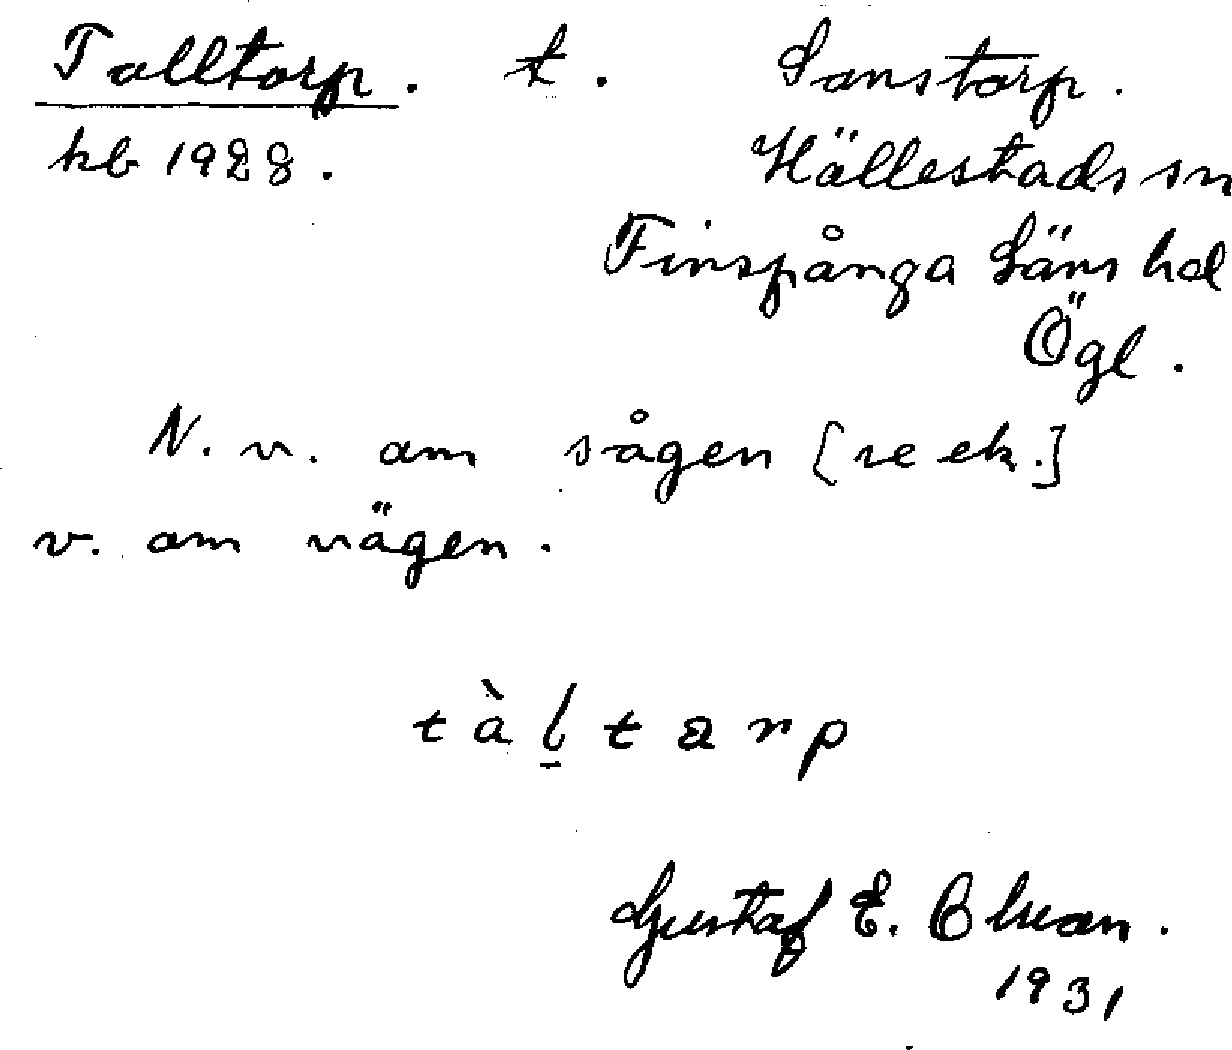 Talltorp. t. Sonstorp.
kb 1928. Hällestads sn
Finspånga läns hd
Ögl.
N. v. om sågen [se ek.]
v. om vägen.
tàḻtarp
Gustaf E.
1931